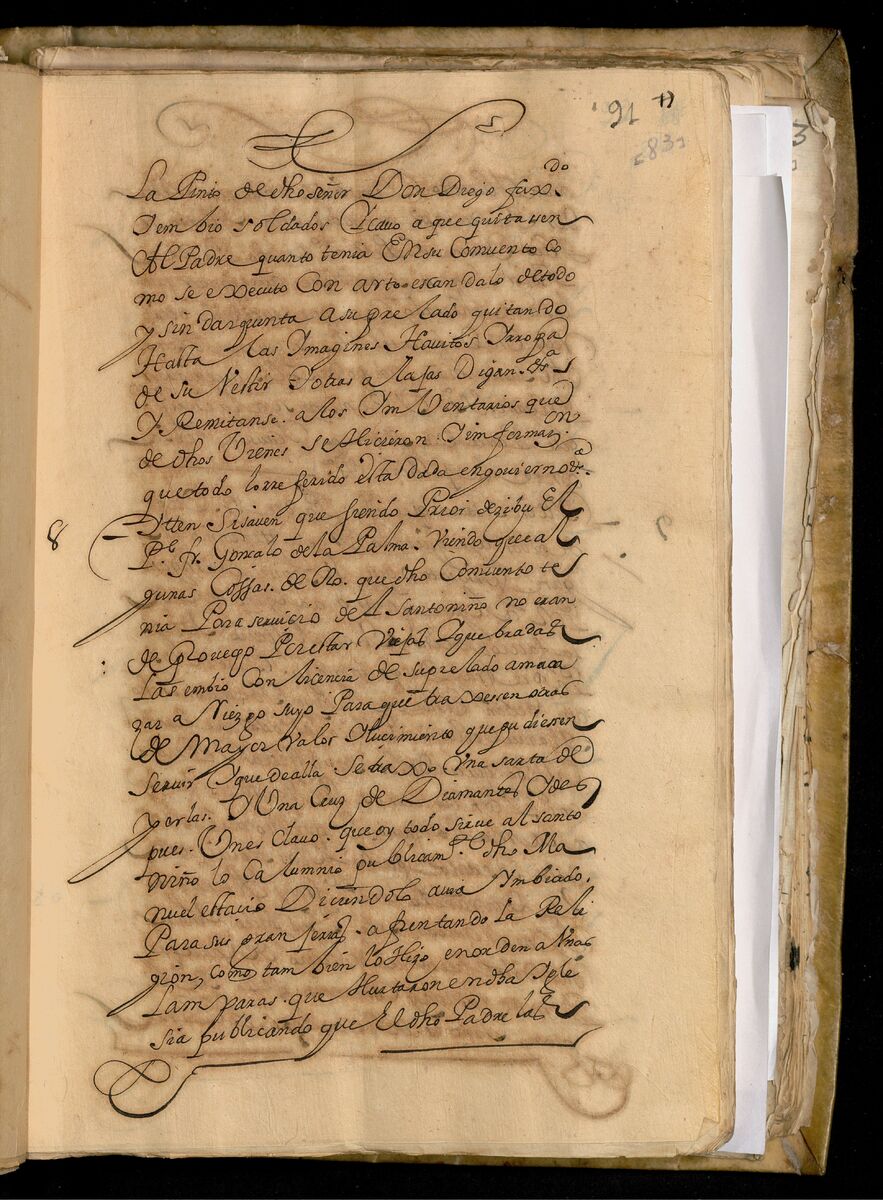 91
83
La Pinto de dho señor Don Diego faxdo
Y embio soldados Esclavo a que quitasen
Al Padre quanto tenia En su Comvento Co
mo se executo Con arto escandalo de todo
y sin dar quenta a su prelado quitando
Hasta las Ymagines Havitos Y rropa
de su Vestir Y otras alajas Digan
Y Remitanse a los Ymbentarios que
de dhos Vienes se Hicieron Y imformazon
que todo lo rreferido esta dada en govierno
8
Ytten Si saven que siendo Prior de zibu El
Pe fr. Gonzalo de la Palma viendo que al
gunas Cossas de Oro que dho Comvento te
nia Para servicio del Santo niño no eran
de provego Por estar viejas Y quebradas
Las embio Con licencia de su prelado a maca
zar a Niezgo suyo Para que traxessen otras
de Mayor valor Y lucimiento que pudiessen
servir Y que de alla se traxo Una sarta de
perlas Y Una Cruz de Diamantes Y des
pues Un esclavo que oy todo sirve al santo
niño lo Calumnio publicamte dho Ma
nuel estacio Diciendolo avia Ymbiado
Para sus granjerias afrentando La Reli
gion, como tambien lo Hizo en orden a Unas
Lamparas que Hurtaron en dha Ygle
sia publicando que El dho Padre las